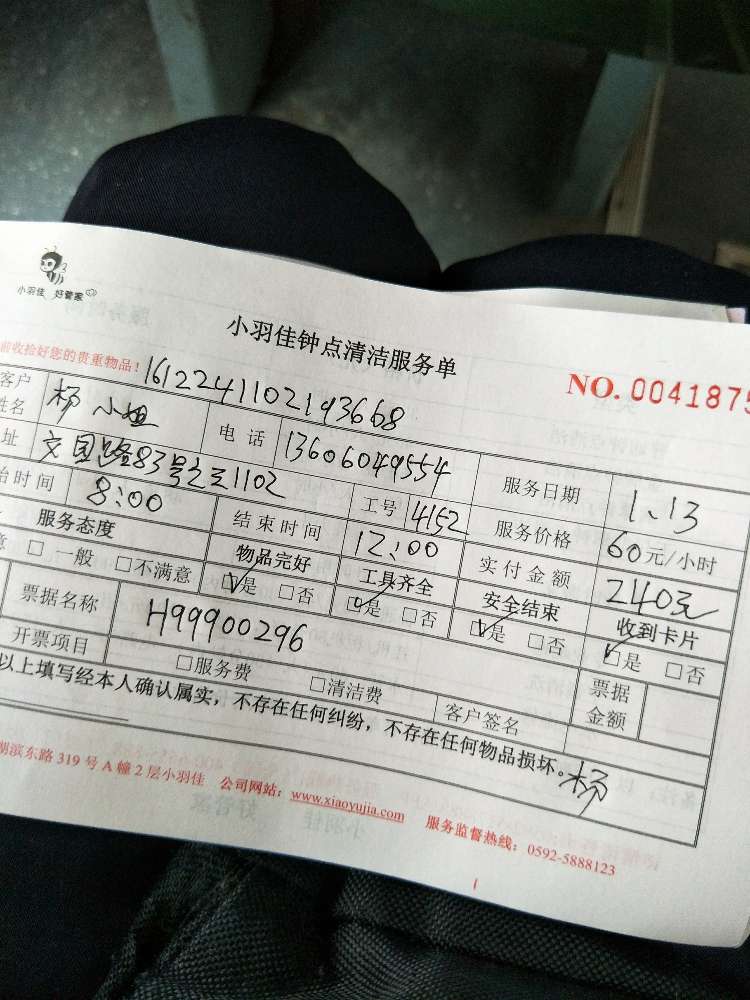 小羽佳 好管家
小羽佳钟点清洁服务单
前收拾好您的贵重物品！
1612241102193668
NO. 0041875
客户姓名 杨小姐 电话 13606049554 服务日期 1.13
址 文园路83号之三1102 工号 4152 服务价格 60元/小时
始时间 8:00 结束时间 12:00 实付金额 240元
服务态度 物品完好 工具齐全 安全结束 收到卡片
意 □一般 □不满意 ☑是 □否 ☑是 □否 ☑是 □否 ☑是 □否
票据名称 H99900296 票据金额
开票项目 □服务费 □清洁费 客户签名
以上填写经本人确认属实，不存在任何纠纷，不存在任何物品损坏。杨
湖滨东路 319 号 A 幢 2 层小羽佳 公司网站：www.xiaoyujia.com 服务监督热线：0592-5888123